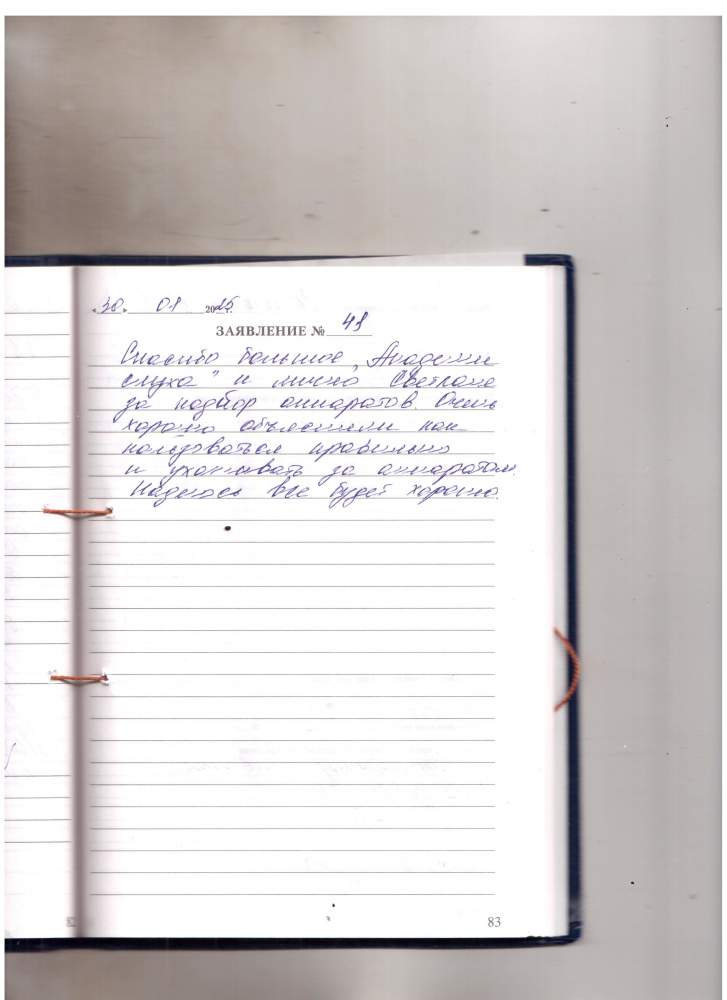 «30» 01 2025 г.
ЗАЯВЛЕНИЕ № 41
Спасибо большое „Академии
слуха" и лично Светлане
за подбор аппаратов. Очень
хорошо объяснили как
пользоваться правильно
и ухаживать за аппаратом.
Надеюсь все будет хорошо.
83